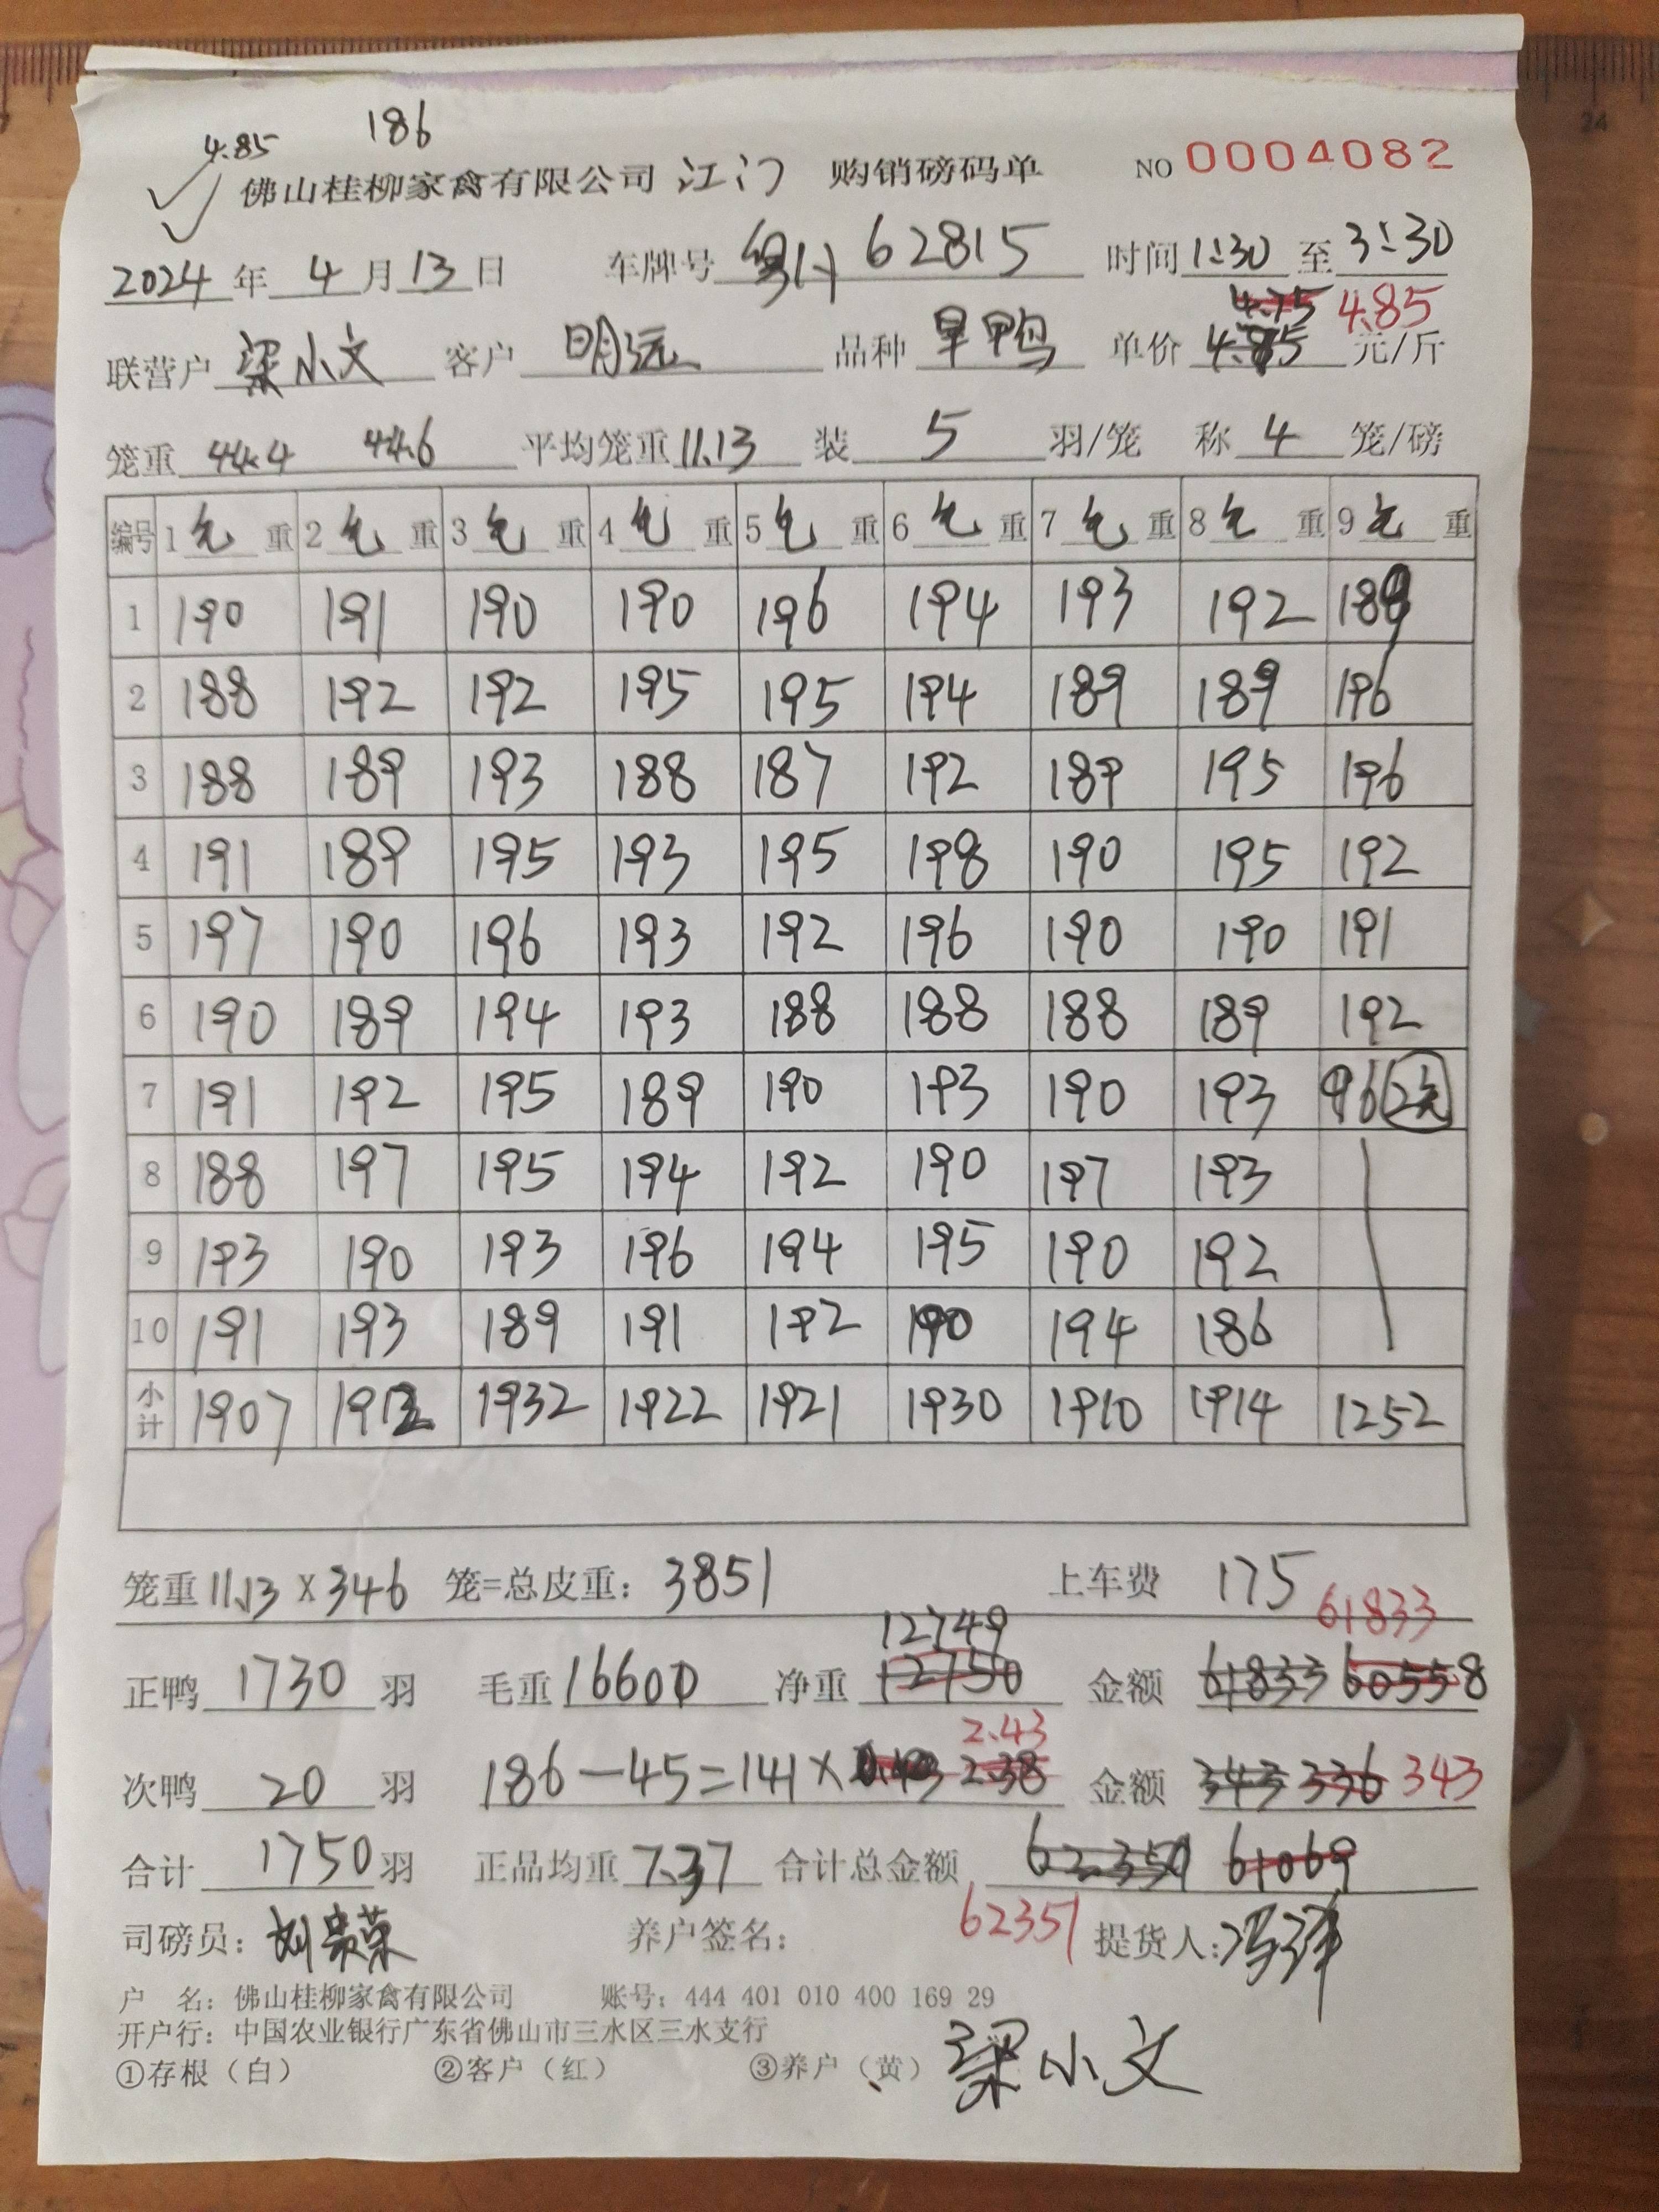 4.85 186
佛山桂柳家禽有限公司 江门 购销磅码单 NO 0004082
2024 年 4 月 13 日 车牌号 粤H 62815 时间 1:30 至 3:30
4.75 4.85
联营户 梁小文 客户 明远 品种 旱鸭 单价 4.85 元/斤
笼重 44.4 44.6 平均笼重 11.13 装 5 羽/笼 称 4 笼/磅
编号 1 毛 重 2 毛 重 3 毛 重 4 毛 重 5 毛 重 6 毛 重 7 毛 重 8 毛 重 9 毛 重
1 190 191 190 190 196 194 193 192 189
2 188 192 192 195 195 194 189 189 196
3 188 189 193 188 187 192 189 195 196
4 191 189 195 193 195 198 190 195 192
5 197 190 196 193 192 196 190 190 191
6 190 189 194 193 188 188 188 189 192
7 191 192 195 189 190 193 190 193 96
8 188 197 195 194 192 190 197 193
9 193 190 193 196 194 195 190 192
10 191 193 189 191 192 190 194 186
小计 1907 1912 1932 1922 1921 1930 1910 1914 1252
笼重 11.13 X 346 笼=总皮重: 3851 上车费 175
12749 61833
正鸭 1730 羽 毛重 16600 净重 12750 金额 61833 60558
2.43
次鸭 20 羽 186-45=141× 2.38 金额 343 336 343
合计 1750 羽 正品均重 7.37 合计总金额 62351 61069
62351
司磅员: 刘荣 养户签名: 提货人:
户 名: 佛山桂柳家禽有限公司 账号: 444 401 010 400 169 29
开户行: 中国农业银行广东省佛山市三水区三水支行
①存根（白） ②客户（红） ③养户（黄） 梁小文